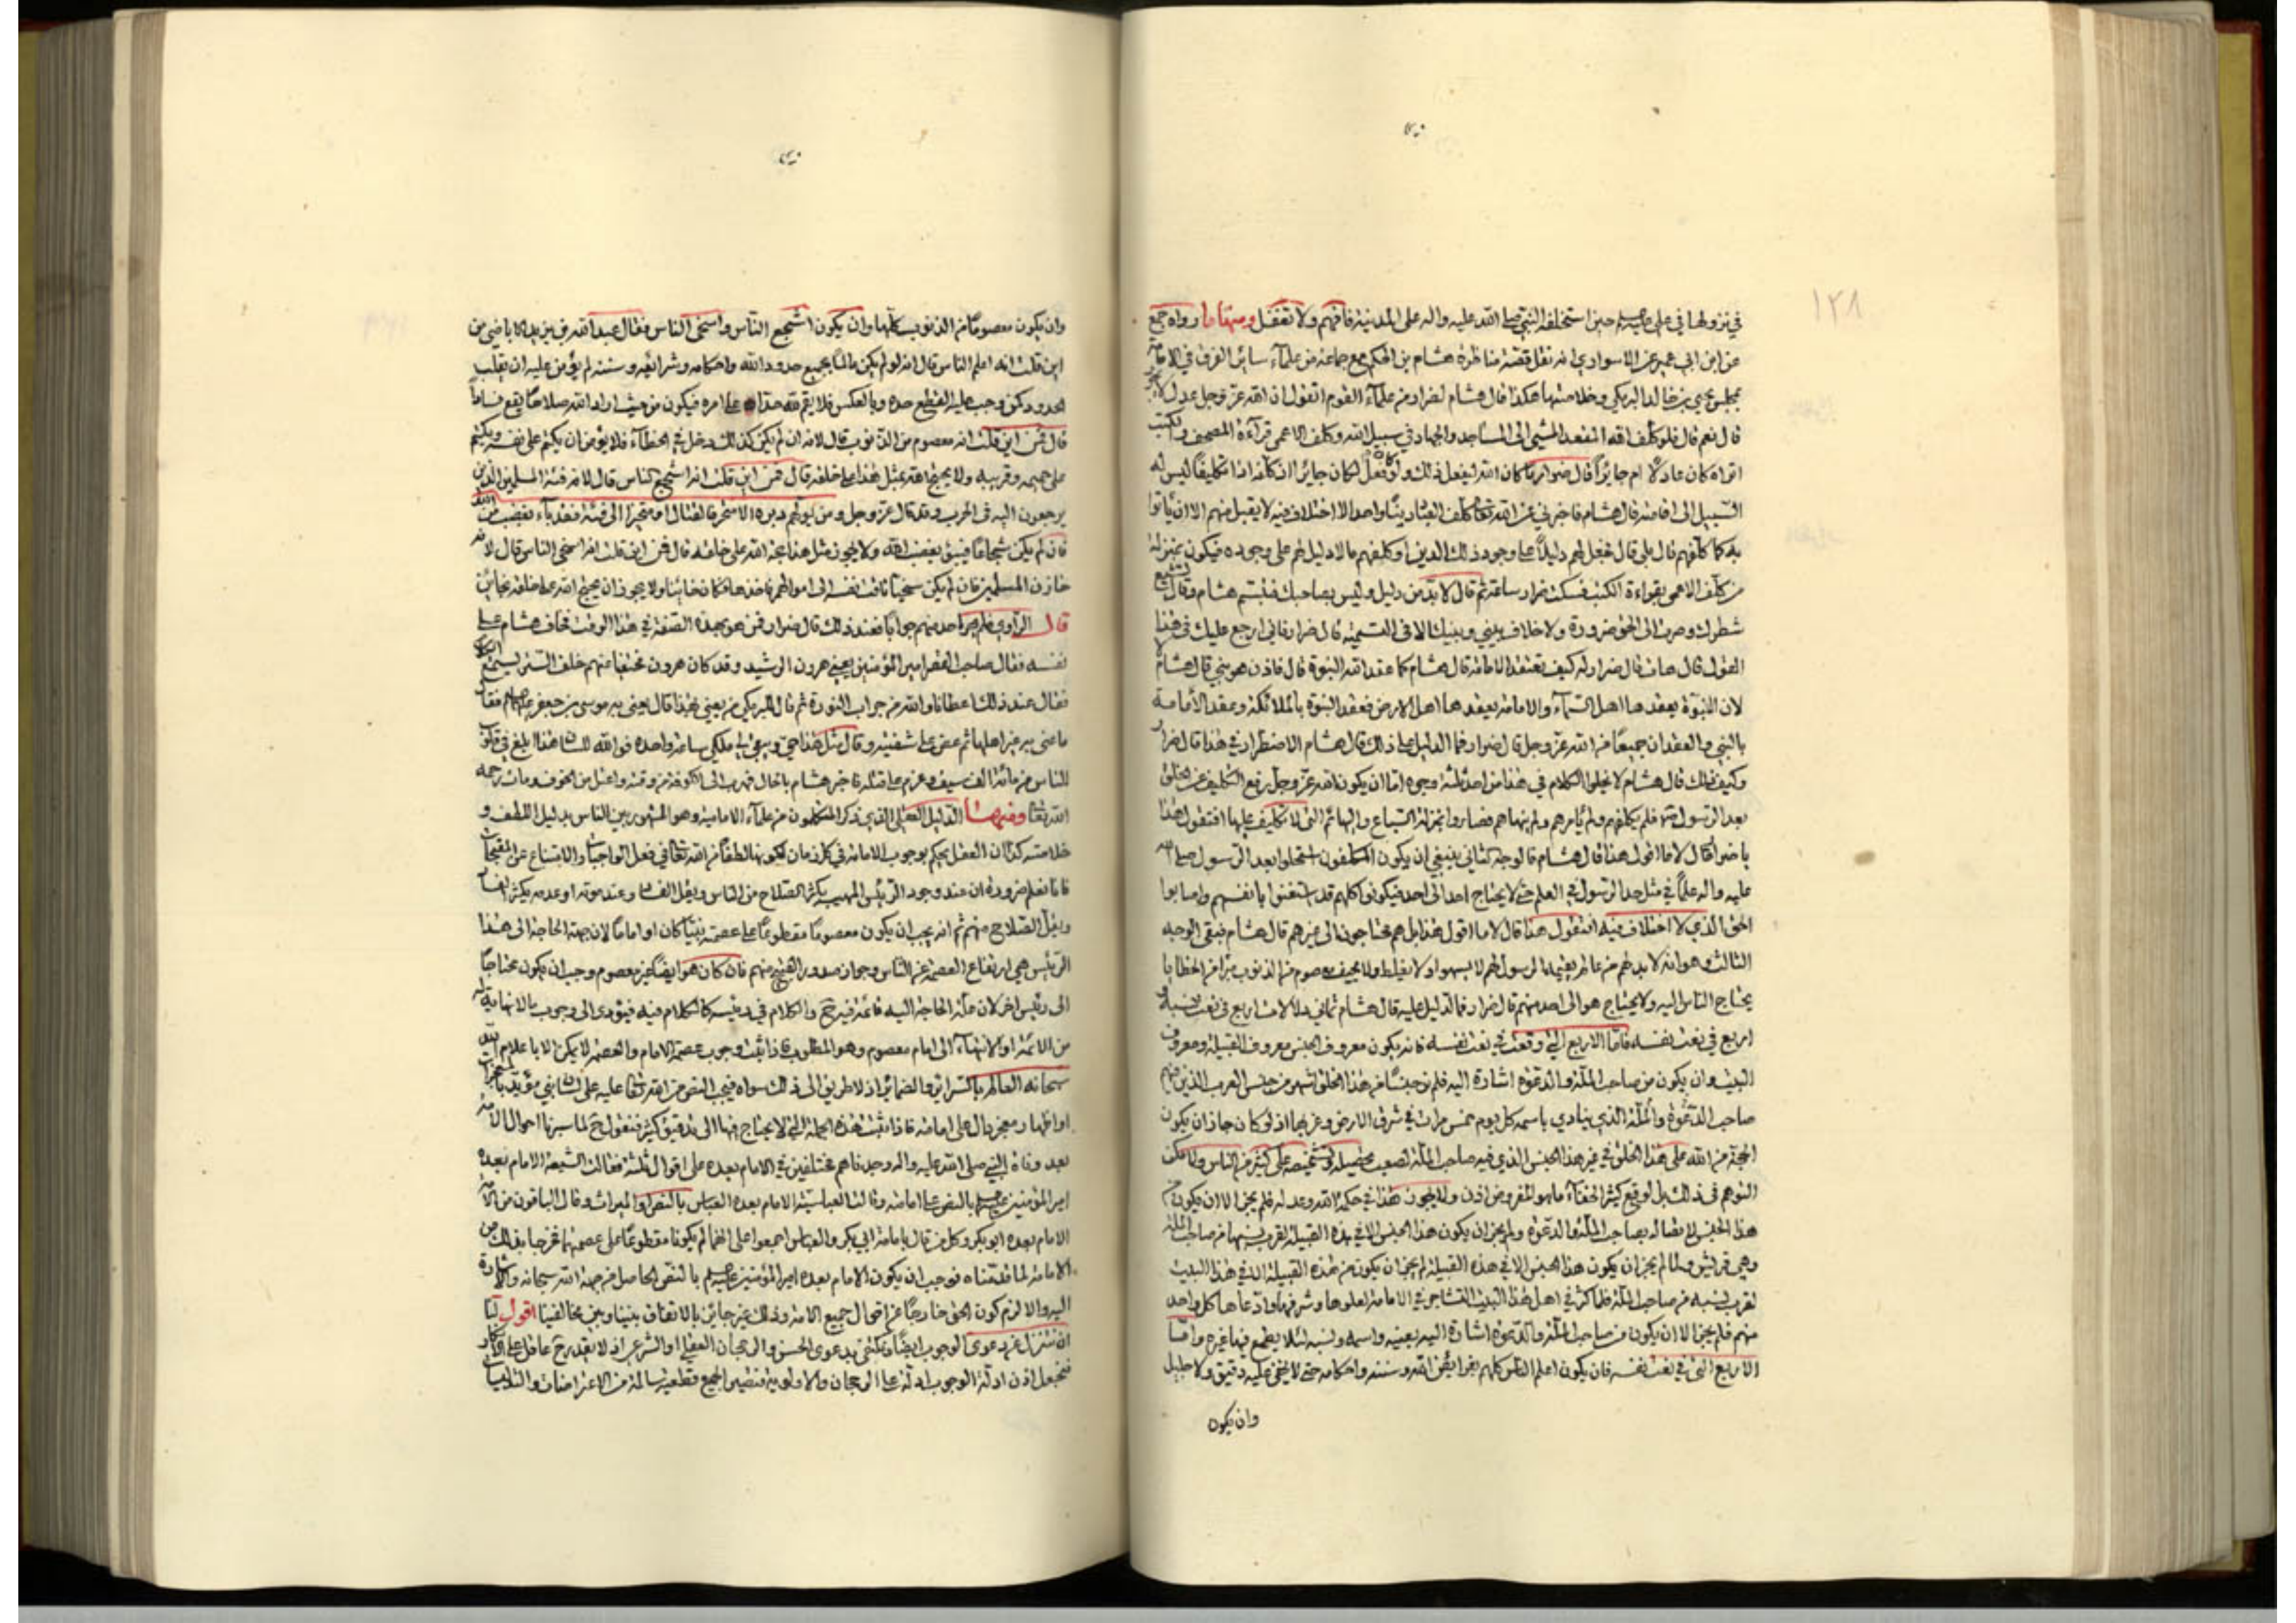 ١٢٨
في نزولها في علي عليه السلم حين استخلفه النبي صلى الله عليه واله على المدينة فافهم ولا تغفل ومنها ما رواه جمع
عن ابن ابي عمير عن الاسواري انه نقل قصة مناظرة هشام بن الحكم مع جماعة من علماء سائر الفرق في الامامة
بمجلس يحيى بن خالد البرمكي وخلاصتها هكذا قال هشام لضرار من علماء القوم اتقول ان الله عز وجل عدل لا يجور
قال نعم قال فلو كلف الله المقعد المشي الى المساجد والجهاد في سبيل الله وكلف الاعمى قراءة المصحف والكتب
اتراه كان عادلا ام جايرا قال ضرار ما كان الله ليفعل ذلك ولو فعل لكان جايرا اذ كلفه اذا تكليفا ليس له
السبيل الى اقامته قال هشام فاخبرني عن الله تعا كلف العباد دينا واحدا لا اختلاف فيه لا يقبل منهم الا ان ياتوا
به كما كلفهم قال بلى قال فجعل لهم دليلا على وجود ذلك الدين او كلفهم ما لا دليل لهم على وجوده فيكون بمنزلة
من كلف الاعمى بقراءة الكتب فسكت ضرار ساعة ثم قال لا بد من دليل وليس بصاحبك فتبسم هشام وقال تشيع
شطرك وصرت الى الحق ضرورة ولا خلاف بيني وبينك الا في التسمية قال ضرار فاني ارجع عليك في هذا
القول قال هات قال ضرار له كيف تعتقد الامامة قال هشام كما عقد الله النبوة قال فاذن هو نبي قال هشام
لان النبوة يعقدها اهل السماء والامامة يعقدها اهل الارض فعقد النبوة بالملائكة وعقد الامامة
بالنبي والعقدان جميعا من الله عز وجل قال ضرار فما الدليل على ذلك قال هشام الاضطرار في هذا قال ضرار
وكيف ذلك قال هشام لا يخلوا الكلام في هذا من احد ثلثة وجوه اما ان يكون الله عز وجل رفع التكليف عن الخلق
بعد الرسول فلم يكلفهم ولم يامرهم ولم ينهاهم فصاروا بمنزلة السباع والبهائم التي لا تكليف عليها افتقول هذا
يا ضرار قال لا ما اقول هذا قال هشام فالوجه الثاني ينبغي ان يكون المكلفون استحلوا بعد الرسول صلى الله
عليه واله علماء في مثل حد الرسول في العلم حتى لا يحتاج احد الى احد فيكونوا كلهم قد استغنوا بانفسهم واصابوا
الحق الذي لا اختلاف فيه افتقول هذا قال لا ما اقول هذا بل هم محتاجون الى غيرهم قال هشام فبقي الوجه
الثالث وهو انه لا بد لهم من عالم يقيمه الرسول لهم لا يسهوا ولا يغلط ولا يحيف معصوم من الذنوب مبرا من الخطايا
يحتاج الناس اليه ولا يحتاج هو الى احد منهم قال ضرار فما الدليل عليه قال هشام ثماني دلالات اربع في نعت نسبه و
اربع في نعت نفسه فاما الاربع التي وقعت في نعت نفسه فانه يكون معروف الجنس معروف القبيلة ومعروف
البيت وان يكون من صاحب الملة والدعوة اشارة اليه فلم نر جنسا من هذا الخلق اشهر من جنس العرب الذين منهم
صاحب الدعوة والملة الذي ينادي باسمه كل يوم خمس مرات في شرق الارض وغربها اذ لو كان جاز ان يكون
الحجة من الله على هذا الخلق في غير هذا الجنس الذي فيه صاحب الملة لصعب تحصيله وتشخيصه على كثير من الناس ولا مكن
التوهم في ذلك بل لوقع كثير الخفاء ما هو المفروض اذن ولا يجوز هذا في حكمة الله وعدله فلم يجز الا ان يكون في
هذا الجنس لاتصاله بصاحب الملة والدعوة ولم يجز ان يكون هذا الجنس الا في هذه القبيلة لقرب نسبها من صاحب الملة
وهي قريش ولما لم يجز ان يكون هذا الجنس الا في هذه القبيلة لم يجز ان يكون من هذه القبيلة الا في هذا البيت
لقرب نسبه من صاحب الملة فلما كثر في اهل هذا البيت التشاجر في الامامة لعلوها وشرفها وادعاها كل واحد
منهم فلم يجز الا ان يكون من صاحب الملة والدعوة اشارة اليه بعينه واسمه ونسبه لئلا يطمع فيها غيره واما
الاربع التي في نعت نفسه فان يكون اعلم الناس كلهم بفرايض الله وسننه واحكامه حتى لا يخفى عليه دقيق ولا جليل
وان يكون
وان يكون معصوما من الذنوب كلها وان يكون اشجع الناس واسخى الناس فقال عبد الله بن يزيد الاباضي من
اين قلت انه اعلم الناس قال انه لو لم يكن عالما بجميع حدود الله واحكامه وشرائعه وسننه لم يؤمن عليه ان يقلب
الحدود كمن وجب عليه القطع حده وبالعكس فلا يقيم لله حدا على امره فيكون من حيث اراد الله صلاحا يقع فسادا
قال فمن اين قلت انه معصوم من الذنوب قال لانه ان لم يكن كذلك دخل في الخطاء فلا يؤمن ان يكتم على نفسه ويكتم
على حميمه وقريبه ولا يحتج الله بمثل هذا على خلقه قال فمن اين قلت انه اشجع الناس قال لانه فئة المسلمين الذين
يرجعون اليه في الحرب وقد قال عز وجل ومن يولهم دبره الا متحرفا لقتال او متحيزا الى فئة فقد باء بغضب من الله
فان لم يكن شجاعا فيبوء بغضب الله ولا يجوز مثل هذا حجة الله على خلقه قال فمن اين قلت انه اسخى الناس قال لانه
خازن المسلمين فان لم يكن سخيا تاقت نفسه الى اموالهم فاخذها فكان خائنا ولا يجوز ان يحتج الله على خلقه بخائن
قال الراوي فلم يحر احد منهم جوابا فعند ذلك قال ضرار فمن هو بهذه الصفة في هذا الوقت فخاف هشام على
نفسه فقال صاحب القصر امير المؤمنين يعني هرون الرشيد وقد كان هرون مختفيا عنهم خلف الستر ليسمع الكلام
فقال عند ذلك اعطانا والله من جراب النورة ثم قال للبرمكي من يعني بهذا قال يعني به موسى بن جعفر عليهما السلم فقال
ما عنى به غير اهلها ثم عض على شفتيه وقال مثل هذا حي ويبقى لي ملكي ساعة واحدة فوالله للسان هذا ابلغ في قلوب
الناس من مائة الف سيف وعزم على قتله فاخبر هشام بالحال فهرب الى الكوفة من وقته واعتل من الخوف ومات رحمه
الله تعا ومنها الدليل العقلي الذي ذكر المتكلمون من علماء الامامية وهو المشهور بين الناس بدليل اللطف و
خلاصته كذا ان العقل يحكم بوجوب الامامة في كل زمان لكونها لطفا من الله تعا في فعل الواجبات والامتناع عن المقبحات
فانا نعلم ضرورة ان عند وجود الرئيس المهيب يكثر الصلاح من الناس ويقل الفساد وعند موته او عدمه يكثر الفساد
ويقل الصلاح منهم ثم انه يجب ان يكون معصوما مقطوعا على عصمته نبيا كان او اماما لان جهة الحاجة الى هذا
الرئيس هي ارتفاع العصمة عن الناس وجواز صدور القبيح منهم فان كان هو ايضا غير معصوم وجب ان يكون محتاجا
الى رئيس اخر لان علة الحاجة اليه قائمة فيه ح والكلام في رئيسه كالكلام فيه فيؤدي الى وجوب ما لا نهاية له
من الائمة او الانتهاء الى امام معصوم وهو المطلوب فاذا ثبت وجوب عصمة الامام والعصمة لا يمكن الا باعلام الله
سبحانه العالم بالسرائر والضمائر اذ لا طريق الى ذلك سواه فيجب النص من الله تعا عليه على لسان نبي مؤيد بالمعجزات
او اظهار معجز دال على امامته فاذا ثبت هذه الجملة التي لا يحتاج فيها الى تدقيق كثير فنقول ح لما سبرنا احوال الامة
بعد وفاة النبي صلى الله عليه واله وجدناهم مختلفين في الامام بعده على اقوال ثلثة فقالت الشيعة الامام بعده
امير المؤمنين عليه السلم بالنص على امامته وقالت العباسية الامام بعده العباس بالنص او الميراث وقال الباقون من الامة
الامام بعده ابو بكر وكل من قال بامامة ابي بكر والعباس اجمعوا على انهما لم يكونا مقطوعا على عصمتهما فخرجا بذلك من
الامامة لما قدمناه فوجب ان يكون الامام بعده امير المؤمنين عليه السلم بالنص الحاصل من جهة الله سبحانه والاشارة
اليه والا لزم كون الحق خارجا عن اقوال جميع الامة وذلك غير جائز بالاتفاق بيننا وبين مخالفينا اقول لنا
ان نتنزل عن دعوى الوجوب ايضا ونكتفي بدعوى الحسن والرجحان العقلي او الشرعي اذ لا يقدر ح عاقل على انكار
فنجعل اذن ادلة الوجوب ادلة على الرجحان والاولوية فتصير الجميع قطعية سالمة من الاعتراضات